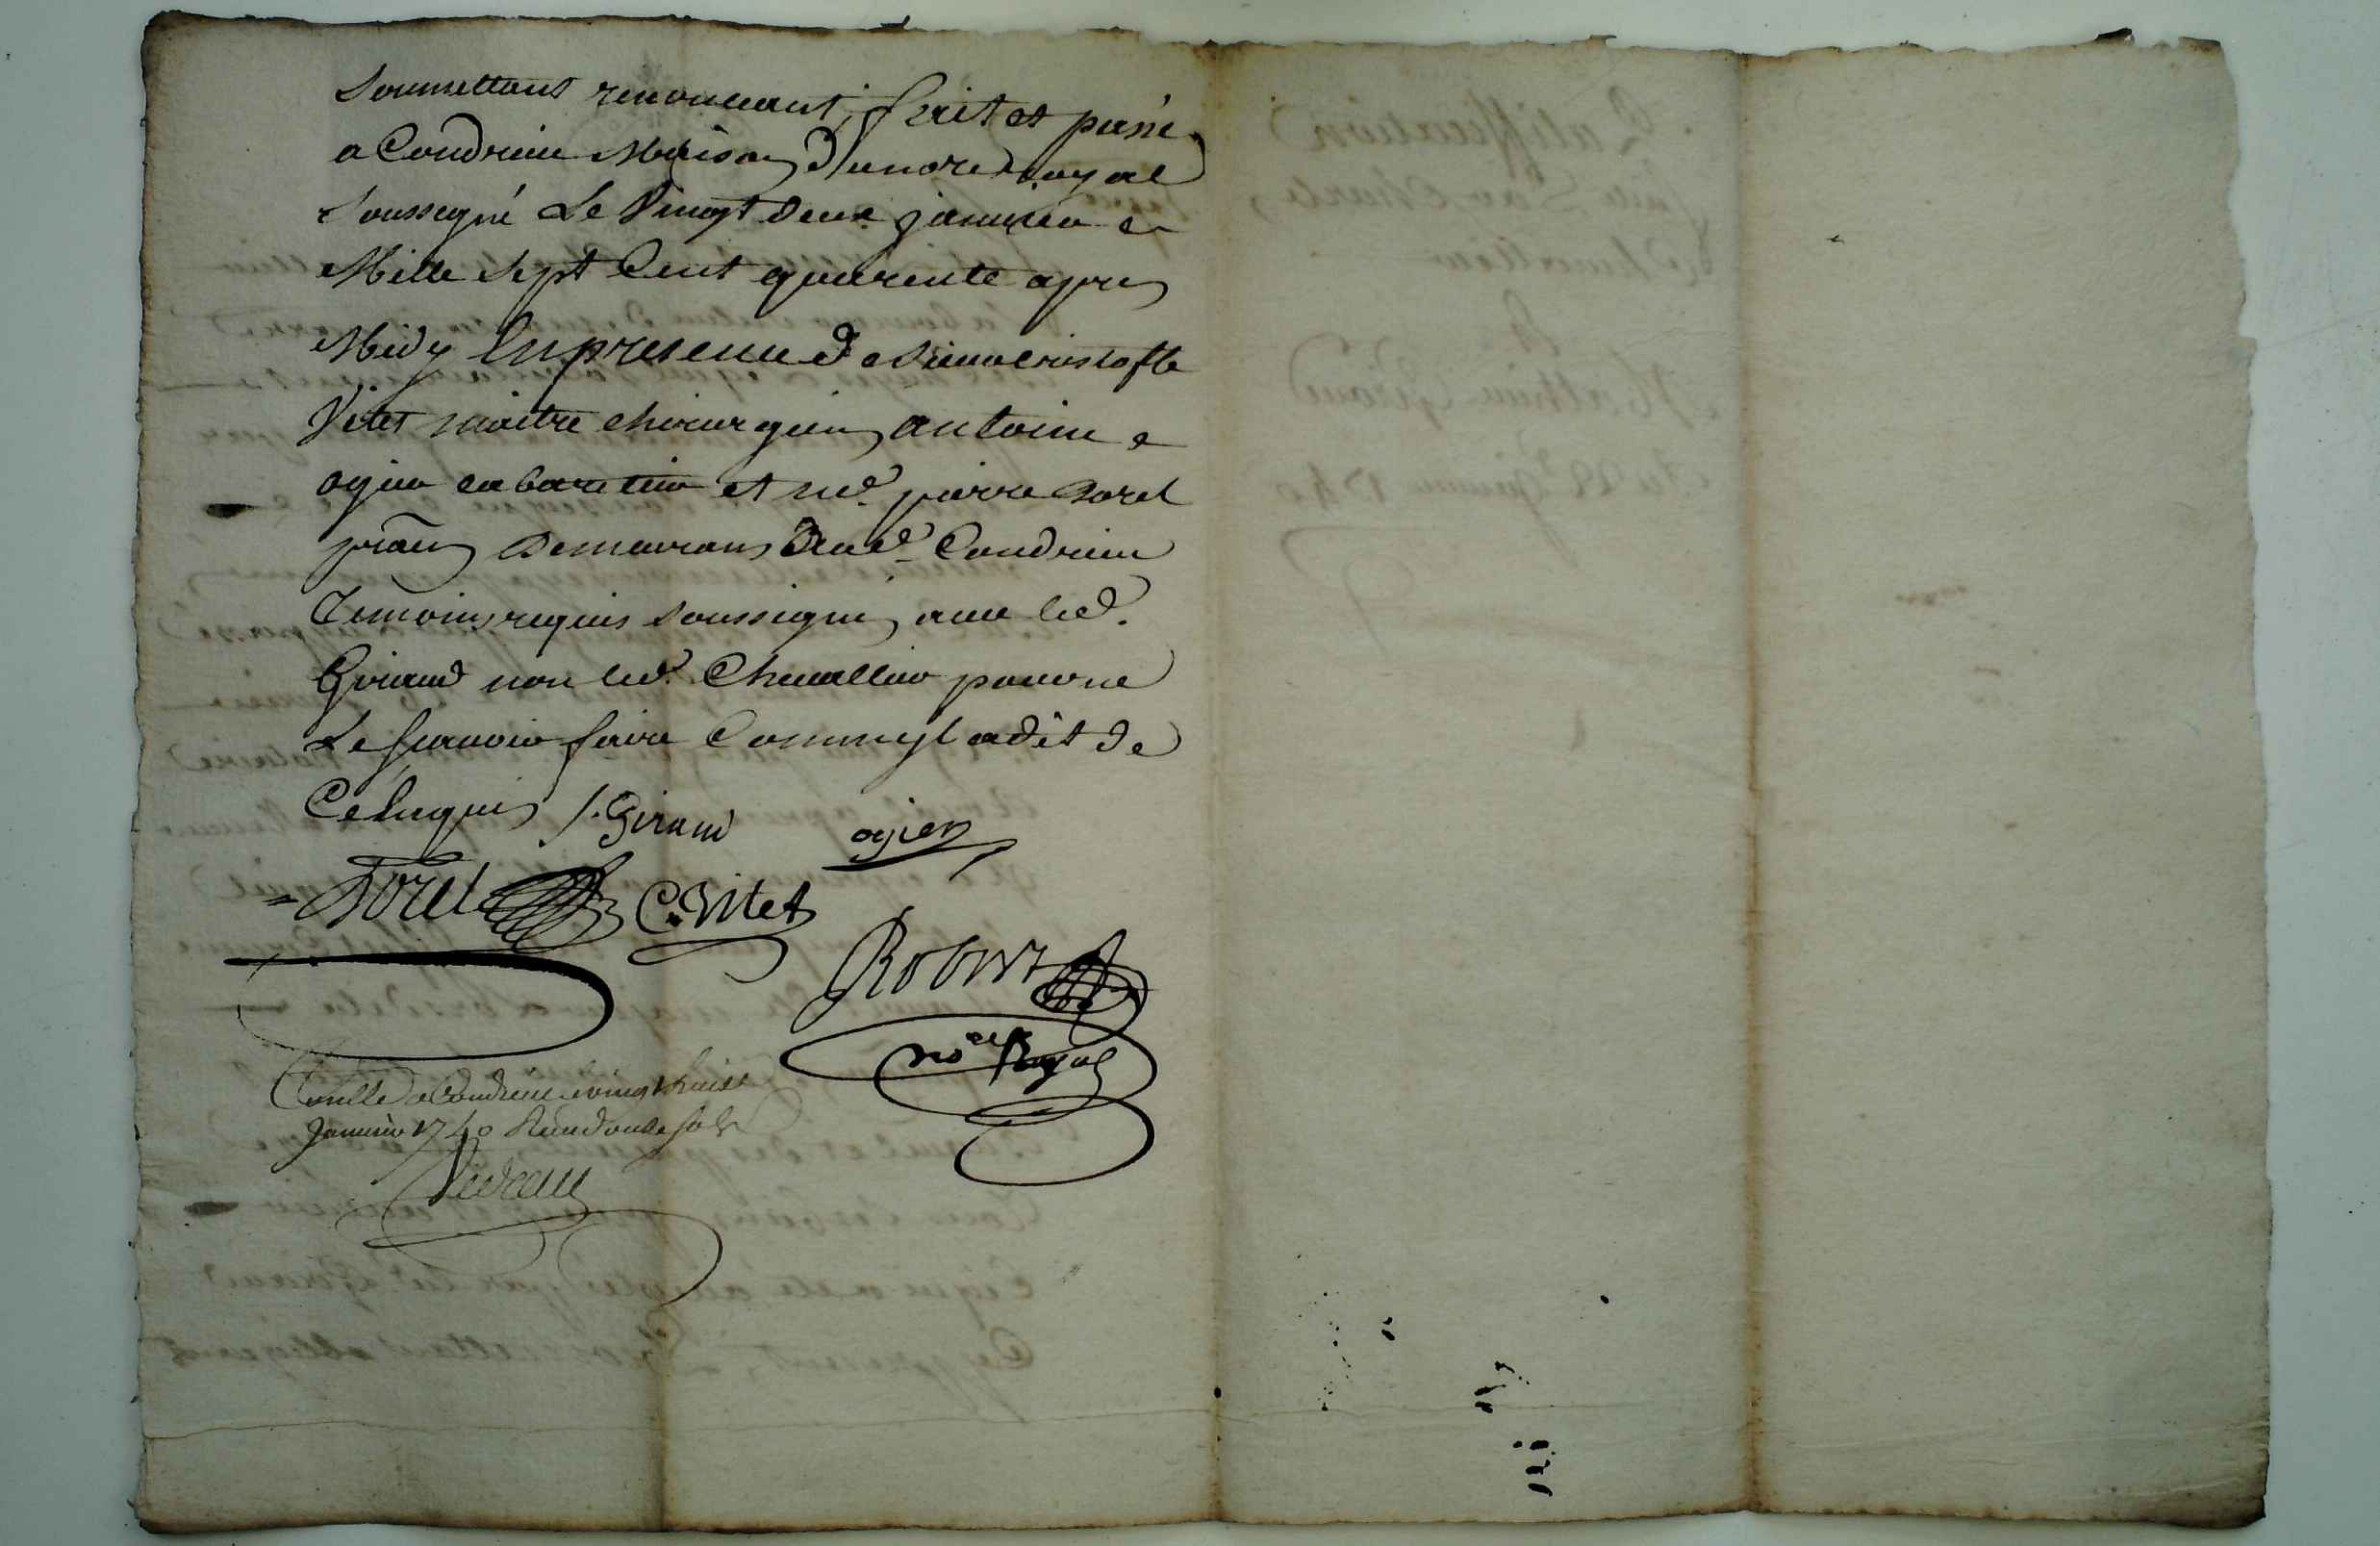 Soumettant renoncant, fait et passé
a Condrieu Maison du nore Royal
soussigné Le Vingt deux janvier
Mille sept Cent quarente apres
Midy En presence de Sieur Cristofle
Vitet maitre chirurgien antoine
ogier cabaretier et me. pierre Sorel
praen demeurans aud. Condrieu
Temoins requis soussignés avec led.
Giraud non led. Chevallier pour ne
Le sçauoir faire Comme yl a dit de
Ce Enquis J. Giraud ogier
Sorel C. Vitet
Robert
nore Royal
Conllé a Condrieu le vingt huit
Janvier 1740 Reçu douze sols